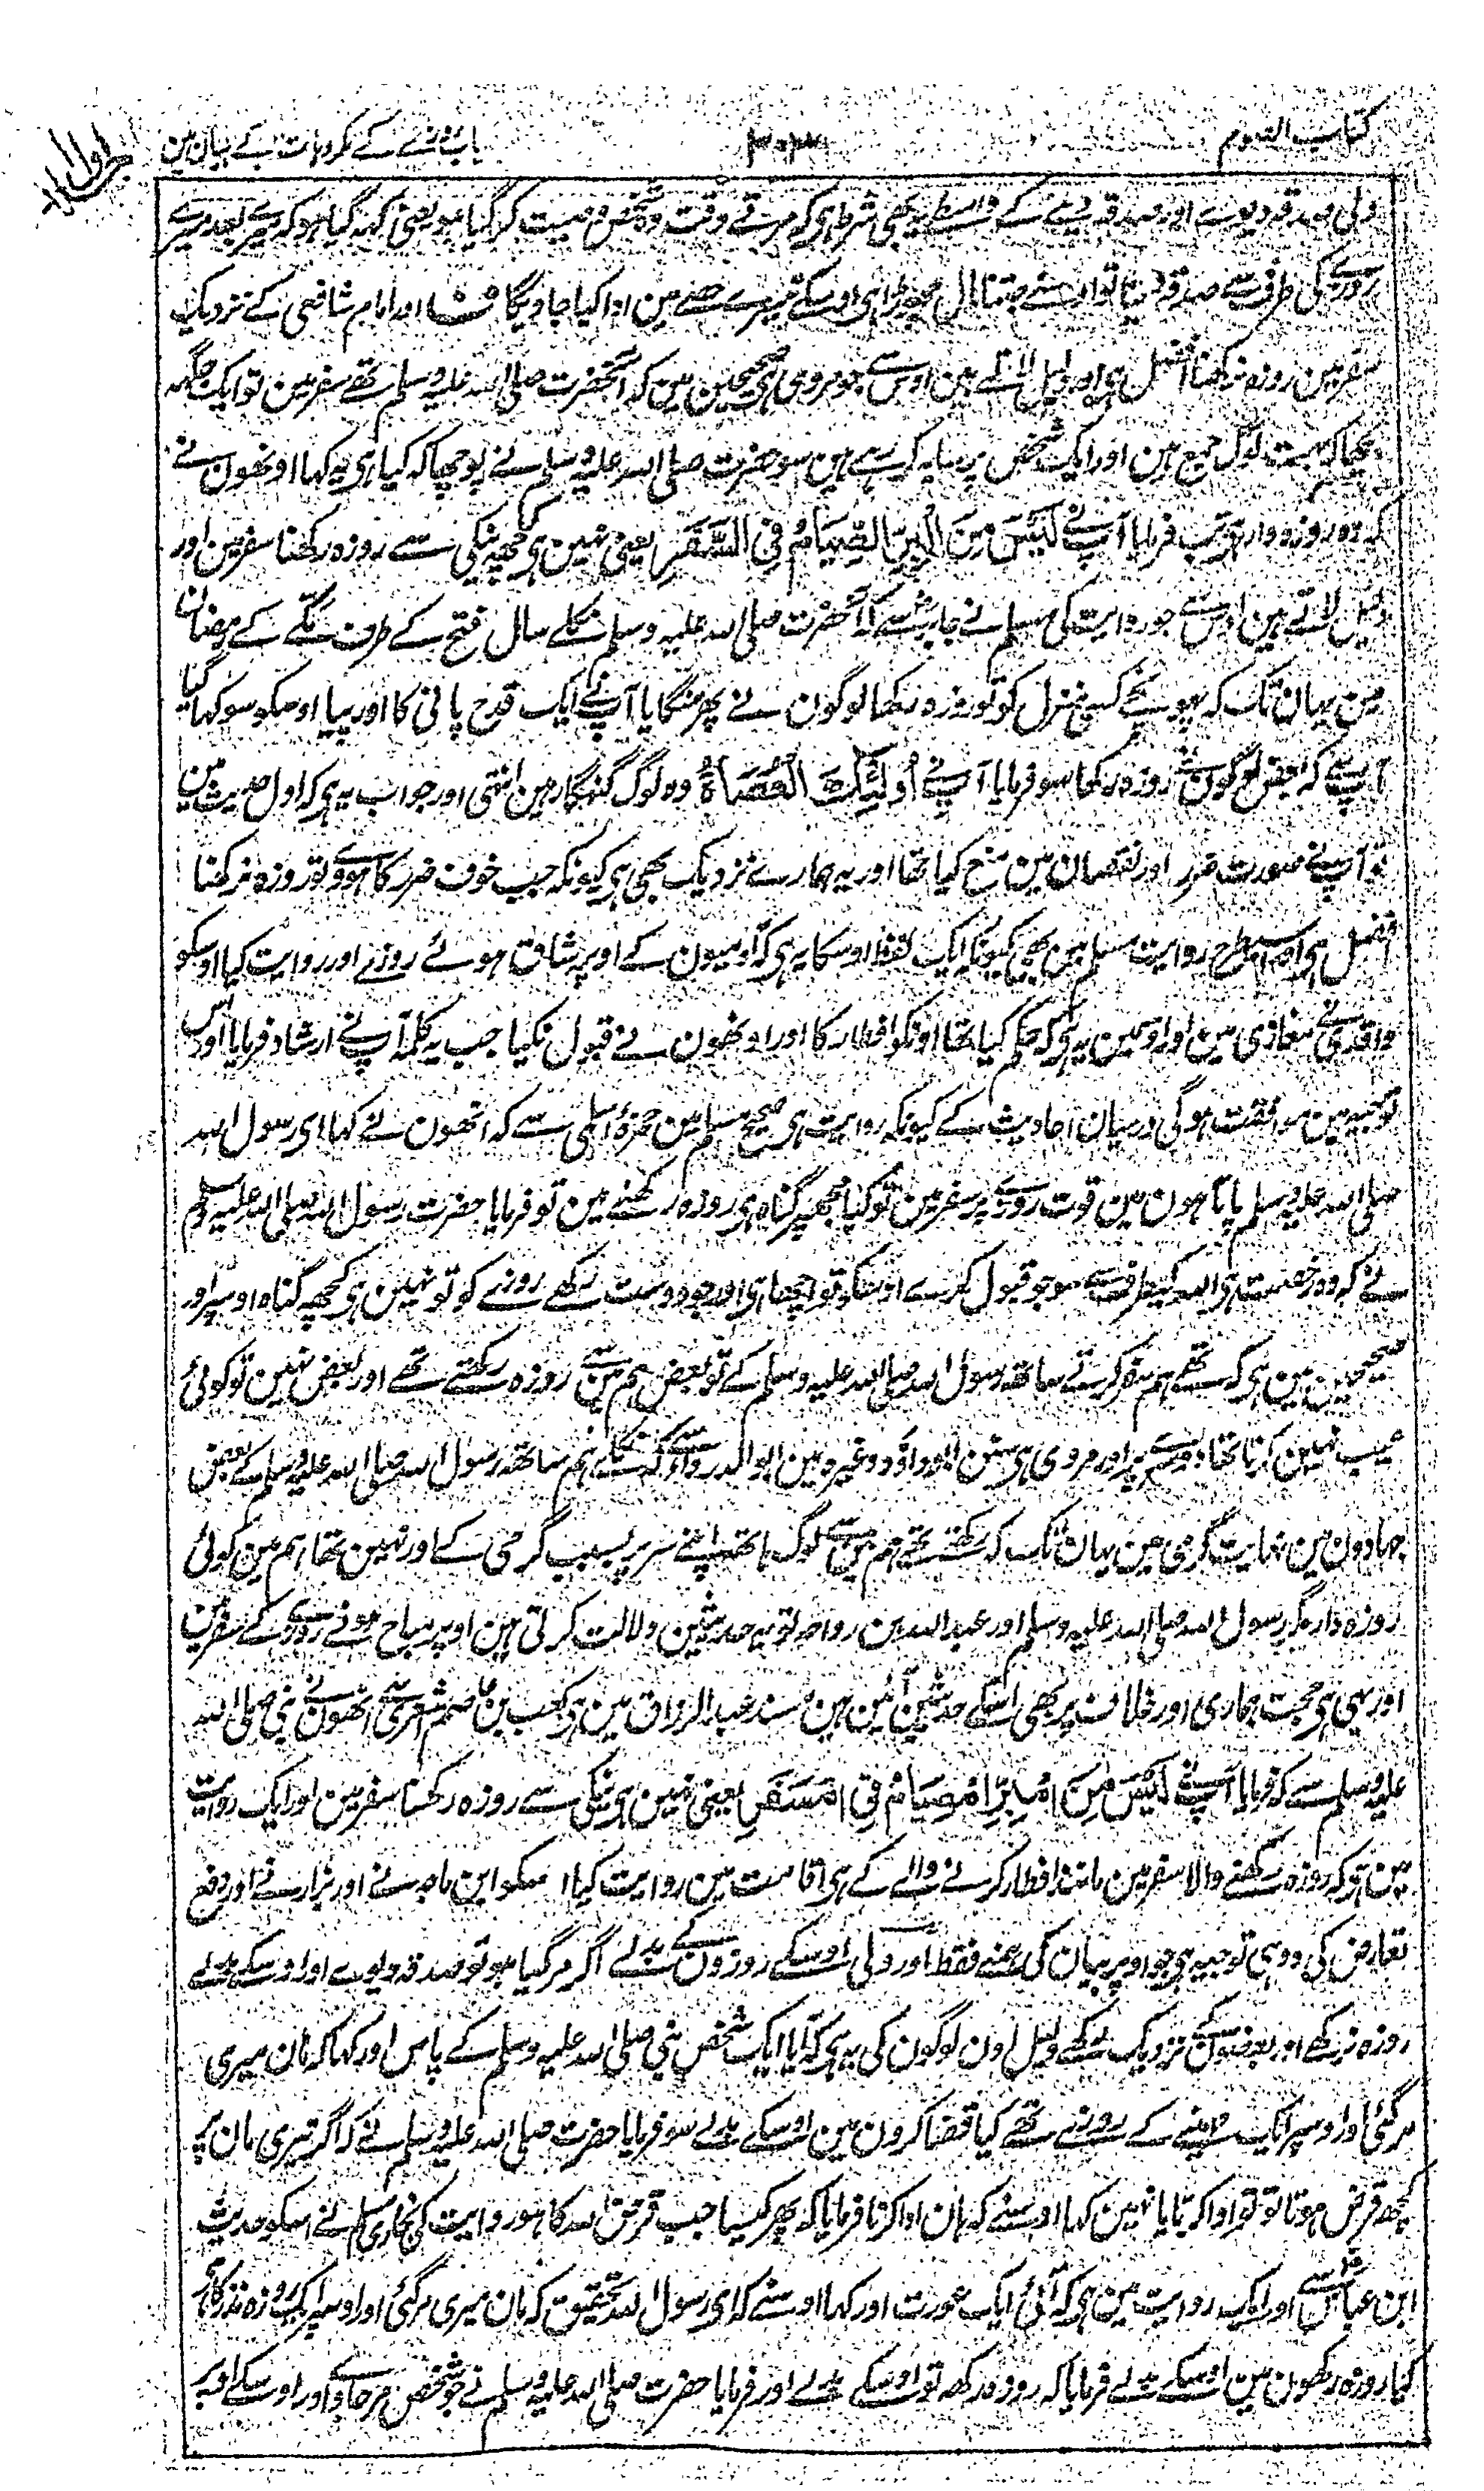 کتاب الصوم
۳۰۳
باب روزے کے مکروہات کے بیان مین
جلد اول
ولی صدقہ دیوے اور صدقہ دینے کے واسطے یہ بھی شرط ہی کہ مرتے وقت وہ شخص وصیت کر گیا ہو یعنی کہہ گیا ہو کہ میرے بعد میرے
روزے کی طرف سے صدقہ دینا تو اوسنے جتنا مال چھوڑا ہی اوسکے تیسرے حصے مین ادا کیا جاویگا ف اور امام شافعی کے نزدیک
سفر مین روزہ نرکھنا افضل ہی اور دلیل لاتے ہین اوس سے جو مروی ہی صحیحین مین کہ آنحضرت صلی اللہ علیہ وسلم تھے سفر مین تو ایک جگہہ
دیکھا کہ بہت لوگ جمع ہین اور ایک شخص پر سایہ کر رہے ہین سو حضرت صلی اللہ علیہ وسلم نے پوچھا کہ کیا ہی یہ کہا اونھون نے
کہ وہ روزہ دار ہی تب فرمایا آپ نے لَیْسَ مِنَ الْبِرِّ الصِّیَامُ فِی السَّفَرِ یعنی نہین ہی کچھ نیکی سے روزہ رکھنا سفر مین اور
دلیل لاتے ہین اوس سے جو روایت کی مسلم نے جابر سے کہ آنحضرت صلی اللہ علیہ وسلم نکلے سال فتح کے طرف مکے کے رمضان
مین یہان تک کہ پہونچے کسی منزل کو تو روزہ رکھا لوگون نے پھر منگایا آپ نے ایک قدح پانی کا اور پیا اوسکو سو کہا گیا
آپ سے کہ بعض لوگون نے روزہ رکھا سو فرمایا آپ نے اُولٰئِکَ الْعُصَاۃُ وہ لوگ گنہگار ہین انتہی اور جواب یہ ہی کہ اول حدیث مین
تو آپ نے صورت ضرر اور نقصان مین منع کیا تھا اور یہ ہمارے نزدیک بھی ہی کیونکہ جب خوف ضرر کا ہووے تو روزہ نرکھنا
افضل ہی اور اسیطرح روایت مسلم مین بھی کیونکہ ایک لفظ اوسکا یہ ہی کہ آدمیون کے اوپر شاق ہوئے روزے اور روایت کیا اوسکو
واقدی نے مغازی مین اور اوسمین یہ ہی کہ حکم کیا تھا اونکو افطار کا اور اونھون نے قبول نکیا جب یہ کلمہ آپ نے ارشاد فرمایا اور اس
توجیہ مین موافقت ہوگی درمیان احادیث کے کیونکہ روایت ہی صحیح مسلم مین حمزہ اسلمی سے کہ انھون نے کہا ای رسول اللہ
صلی اللہ علیہ وسلم پاتا ہون مین قوت روزے پر سفر مین تو کیا مجھپر گناہ ہی روزہ رکھنے مین تو فرمایا حضرت رسول اللہ صلی اللہ علیہ وسلم
نے کہ وہ رخصت ہی اللہ کیطرف سے سو جو قبول کرے اوسکو تو اچھا ہی اور جو دوست رکھے روزے کو تو نہین ہی کچھ گناہ اوسپر اور
صحیحین مین ہی کہ تھے ہم سفر کرتے ساتھ رسول اللہ صلی اللہ علیہ وسلم کے تو بعض ہم مین سے روزہ رکھتے تھے اور بعض نہین تو کوئی
عیب نہین کرتا تھا دوسرے پر اور مروی ہی سنن ابو داؤد وغیرہ مین ابو الدرداء سے کہ نکلے ہم ساتھ رسول اللہ صلی اللہ علیہ وسلم کے بعض
جہادون مین نہایت گرمی مین یہان تک کہ رکھتے تھے ہم مین سے لوگ ہاتھ اپنے سر پر بسبب گرمی کے اور نہین تھا ہم مین کوئی
روزہ دار مگر رسول اللہ صلی اللہ علیہ وسلم اور عبد اللہ بن رواحہ تو یہ حدیثین دلالت کرتی ہین اوپر مباح ہونے روزے کے سفر مین
اور یہی ہی حجت ہماری اور خلاف پر بھی اسکے حدیثین آئین ہین مسند عبد الرزاق مین ہی کعب بن عاصم اشعری سے انھون نے نبی صلی اللہ
علیہ وسلم سے کہ فرمایا آپ نے لَیْسَ مِنَ امْبِرِّ امْصِیَامُ فِی امْسَفَرِ یعنی نہین ہی نیکی سے روزہ رکھنا سفر مین اور ایک روایت
مین ہی کہ روزہ رکھنے والا سفر مین مانند افطار کرنے والے کے ہی اقامت مین روایت کیا اسکو ابن ماجہ نے اور بزار نے اور دفع
تعارض کی دوہی توجیہ ہی جو اوپر بیان کی ہمنے فقط اور ولی اوسکے روزون کے بدلے اگر مر گیا ہو تو صدقہ دیوے اور اوسکے بدلے
روزہ نرکھے اور بعضون کے نزدیک رکھے دلیل اون لوگون کی یہ ہی کہ آیا ایک شخص نبی صلی اللہ علیہ وسلم کے پاس اور کہا کہ مان میری
مر گئی اور اوسپر ایک مہینے کے روزے تھے کیا قضا کرون مین اوسکے بدلے سو فرمایا حضرت صلی اللہ علیہ وسلم نے کہ اگر تیری مان پر
کچھ قرض ہوتا تو تو ادا کرتا یا نہین کہا اوسنے کہ ہان ادا کرتا فرمایا کہ پھر کیسا جب قرض اللہ کا ہو روایت کی بخاری مسلم نے اسکو حدیث
ابن عباس سے اور ایک روایت مین ہی کہ آئی ایک عورت اور کہا اوسنے کہ ای رسول اللہ تحقیق کہ مان میری مر گئی اور اوسپر ایک روزہ نذر کا ہی
کیا روزہ رکھون مین اوسکے بدلے فرمایا کہ روزہ رکھ تو اوسکے بدلے اور فرمایا حضرت صلی اللہ علیہ وسلم نے جو شخص مر جاوے اور اوسکے اوپر